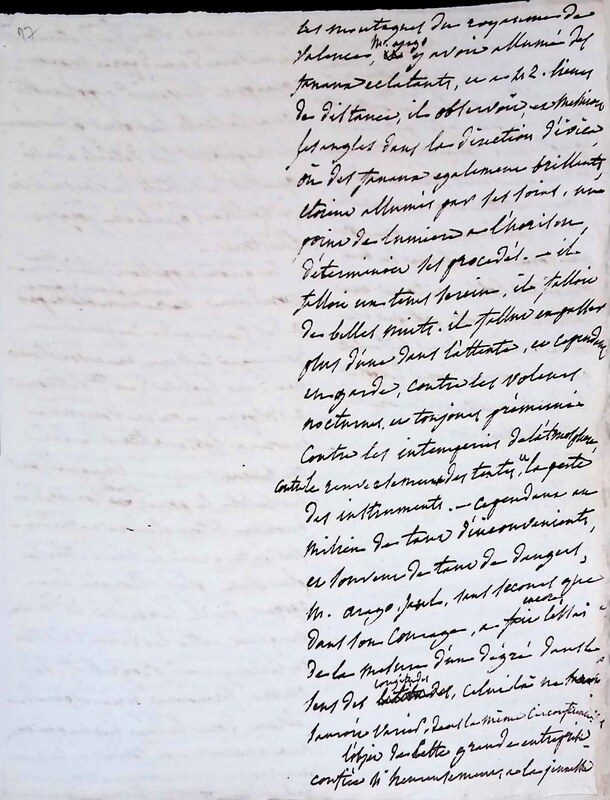 97
les montagnes du royaume de
Valence, mr. arago y avoit allumé des
fanaux eclatants, et a 42. lieues
de distance, il observoit, en mesurant
les angles dans la direction d'ivica
où des fanaux egalement brillants,
etoient allumés par ses soins, un
point de lumiere a l'horison,
determinoit ses procedés. — il
falloit un tems serein, il falloit
de belles nuits. il fallut en passer
plus d'une dans l'attente, et cependant
en garde, contre les voleurs
nocturnes, et toujours prémuni
contre les intemperies de l'atmosphere,
contre le renversement des tentes, la perte
des instruments. — cependant au
milieu de tant d'inconvenients,
et souvent de tant de dangers,
m. arago seul, sans secours que
dans son courage, a fait encore l'essai
de la mesure d'un dégré dans le
sens des longitudes, celui là ne
sauroit varier, dans la même circonference
l'objet de cette grande entreprise
confiée si heureusement, a la jeunesse